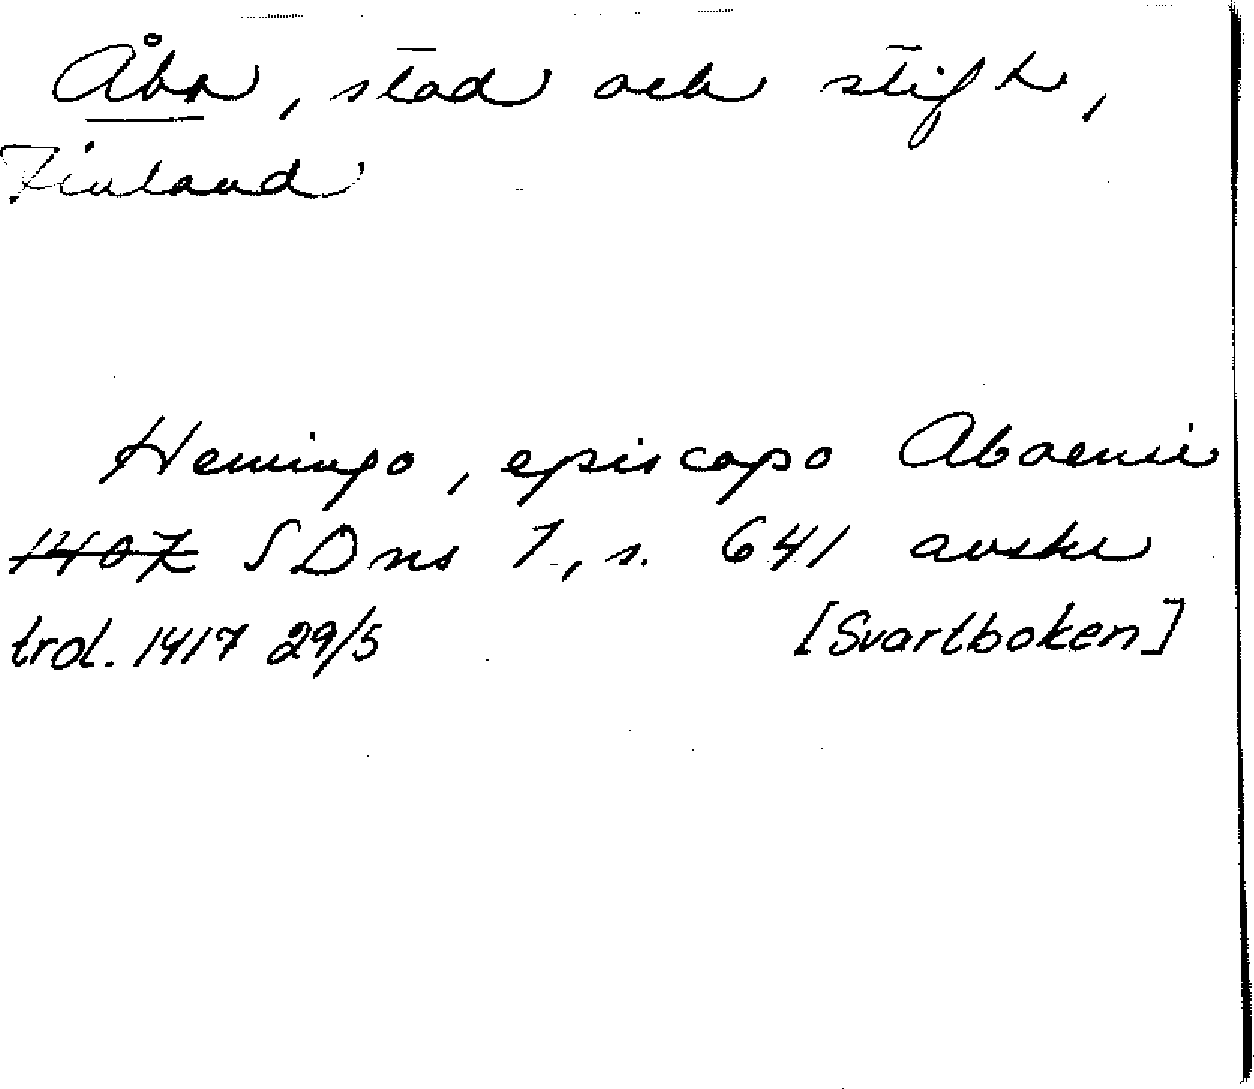 Åbo, stad och stift,
Finland
Hemingo, episcopo Aboensi
1407 SDns 1, s. 641 avskr
trol. 1417 29/5 [Svartboken]